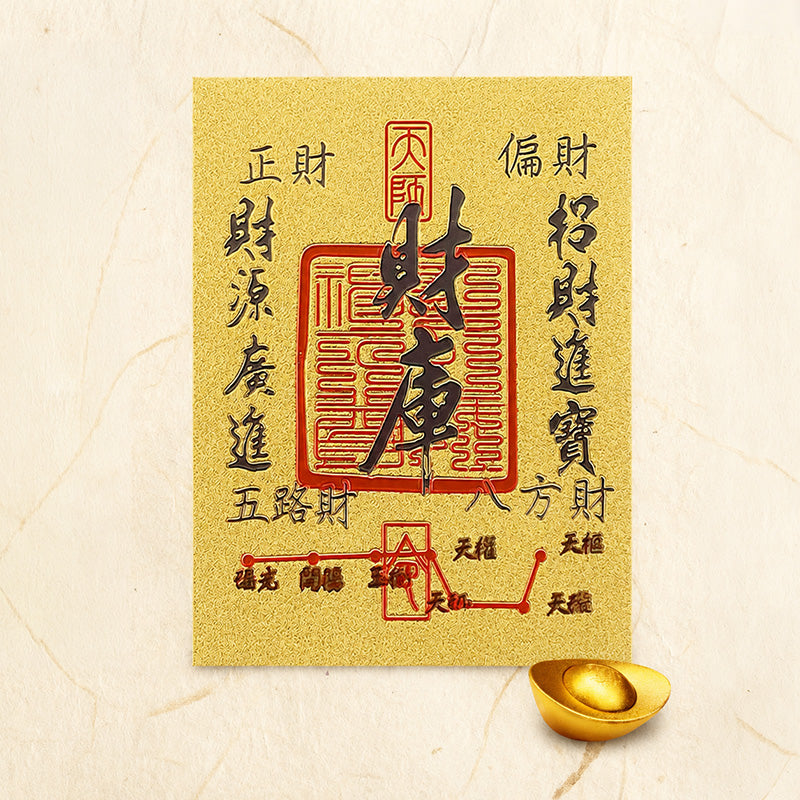 天師
正財
偏財
財庫
招財進寶
財源廣進
五路財
八方財
天權
天樞
開陽
玉衡
天璇